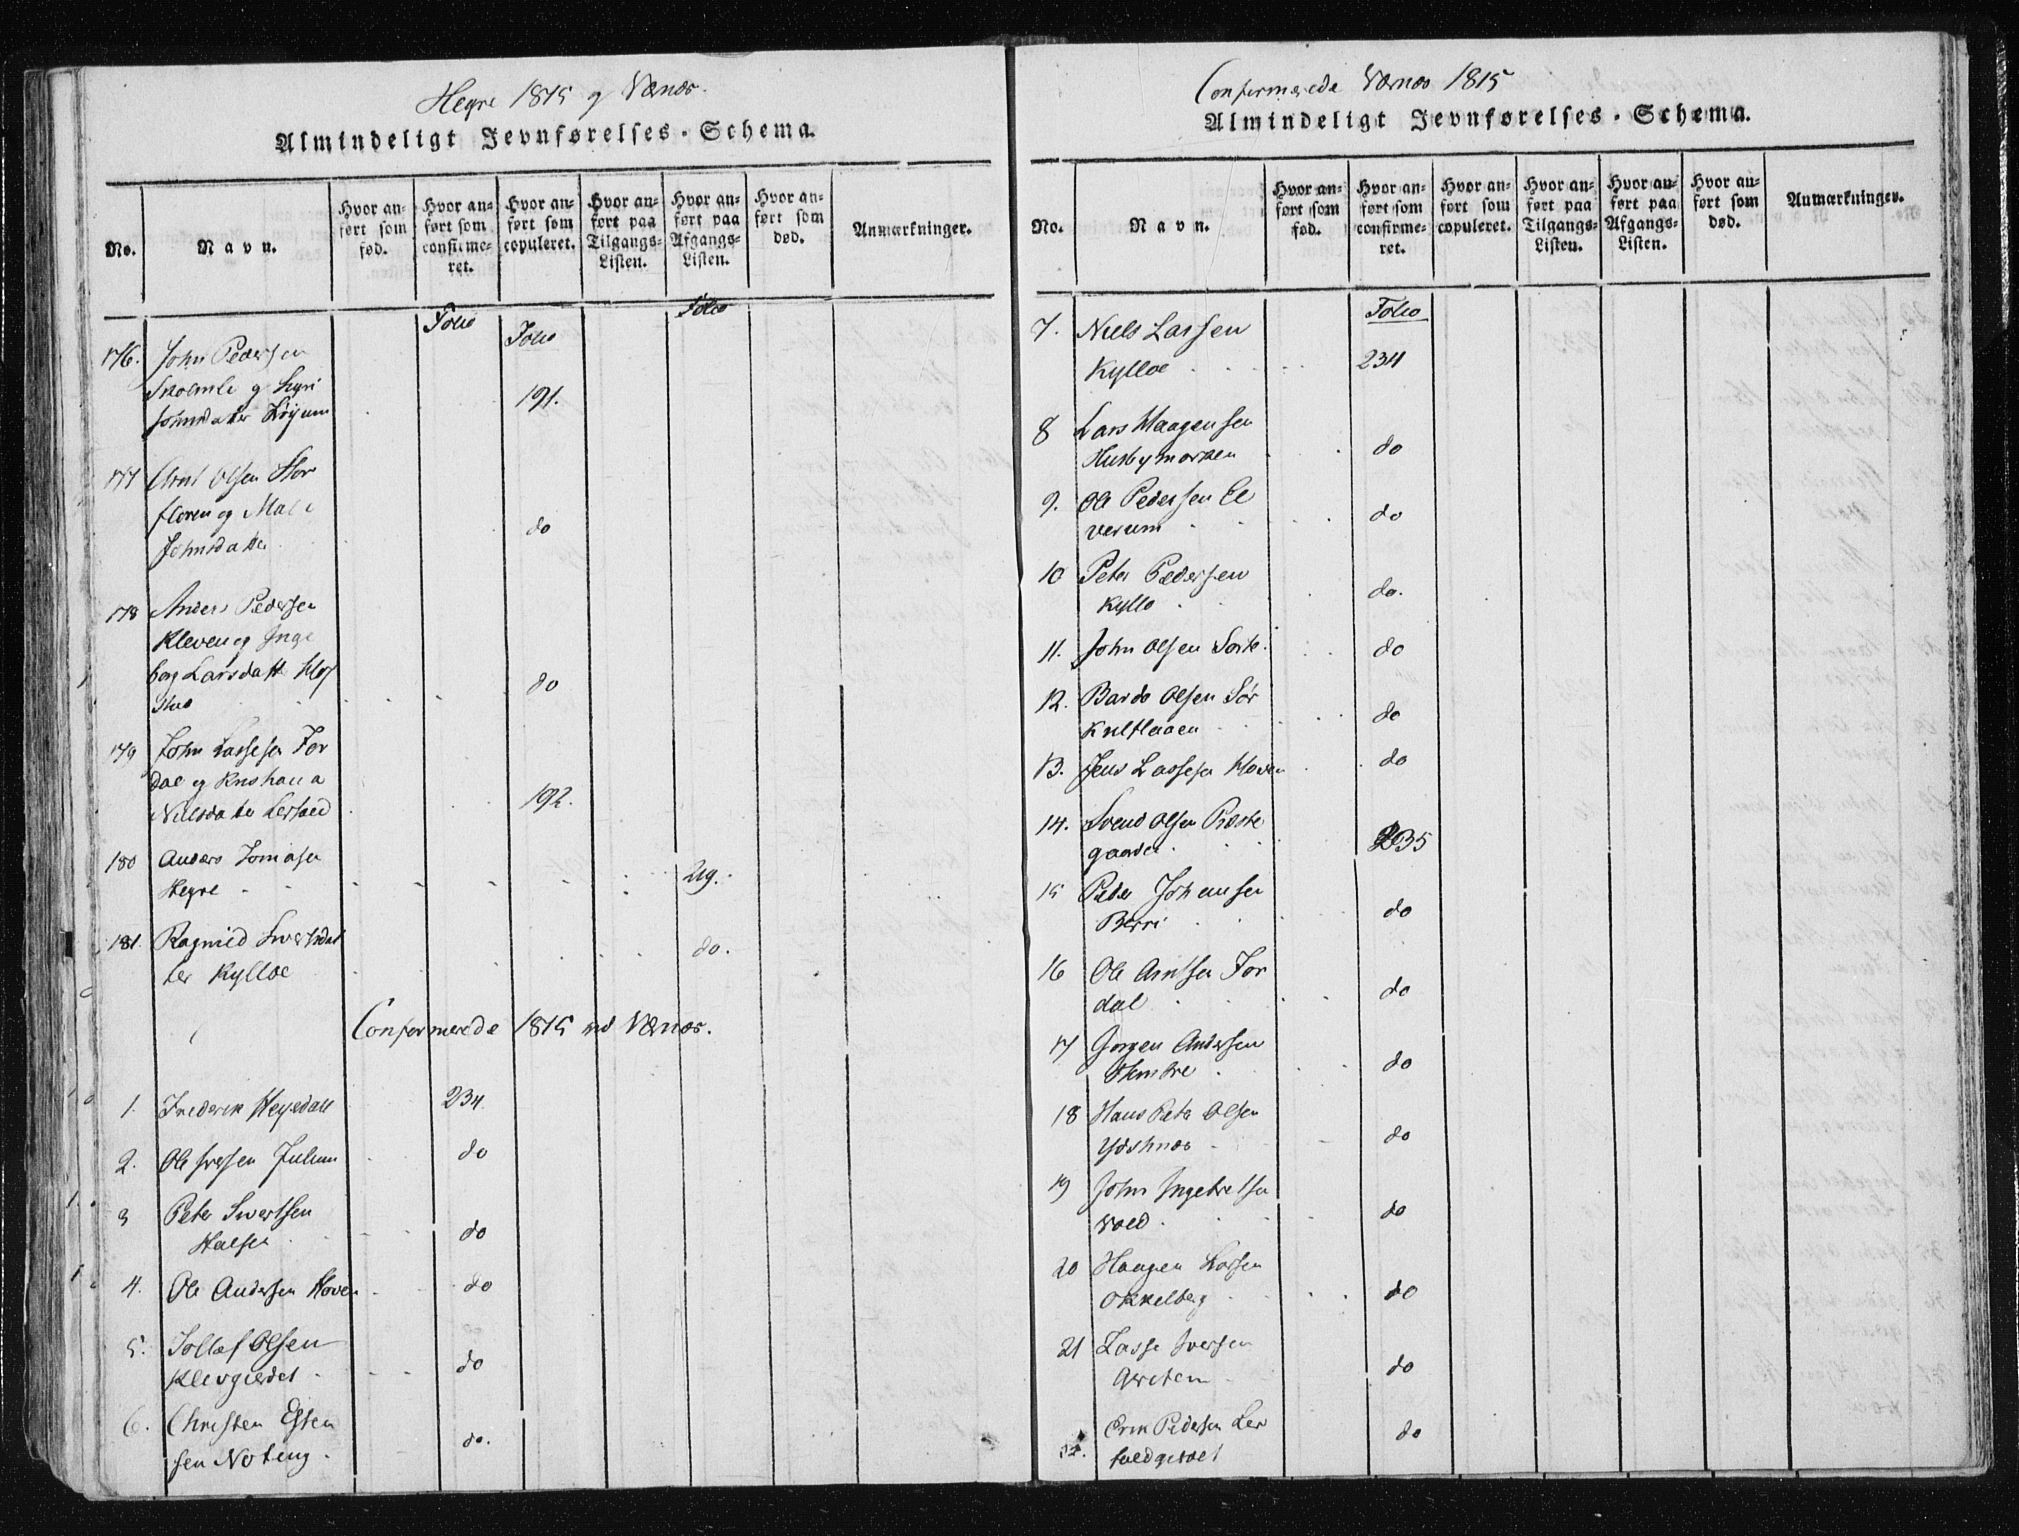 Hegre 1815 og Værnæs.
Almindeligt Jevnførelses-Schema.
No.
Navn.
Hvor anført som fød.
Hvor anført som confirmeret.
Hvor anført som copuleret.
Hvor anført paa Tilgangs-Listen.
Hvor anført paa Afgangs-Listen.
Hvor anført som død.
Anmærkninger.
Folio
Folio
Folio
176. John Pedersen
og Sigri
Johnsdatter 191.
177 Arnt Olsen Stor
floren og
Johnsdatter do
178 Anders Pedersen
Kleven og Inge
borg Larsdatt
do
179 John Lassesen For
dal og
Nielsdatter 192.
180 Anders Tomasen
Hegre 219.
181. Ragnild
ter Kylloe do.
Confermerede 1815 ved Værnæs.
1. Frederik 234
2. Ole Iversen do
3 Peter Sivertsen
Halset do
4. Ole Andersen Hoven do
5. Tollef Olsen
Klevgierdet do
6. Christen Esten
sen do.
Confermerede Værnæs 1815
Almindeligt Jevnførelses-Schema.
No.
Navn.
Hvor anført som fød.
Hvor anført som confirmeret.
Hvor anført som copuleret.
Hvor anført paa Tilgangs-Listen.
Hvor anført paa Afgangs-Listen.
Hvor anført som død.
Anmærkninger.
Folio
7. Niels Larsen
Kylloe 234
8 Lars Haagensen
Husbymarken do
9. Ole Pedersen El
verum do
10 Peter Pedersen
Kyllo do.
11. John Olsen do
12. Bardo Olsen
do
13. Jens Lassesen Hoven do
14. Svend Olsen Præste
gaarden 235
15 Peder Johansen
Berri do
16 Ole Arntsen For
dal do
17 Jørgen Andersen
do
18 Hans Peter Olsen
do
19 John Ingebretsen
Vold do
20 Haagen Larsen
Okkelberg do
21 Lasse Iversen
do
22. Erik Pedersen Ler
do